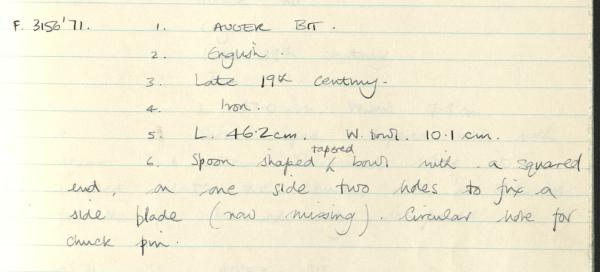 F. 3156'71. 1. AUGER BIT.
2. English.
3. Late 19th century.
4. Iron.
5. L. 46.2cm. W. bowl. 10.1 cm.
6. Spoon shaped tapered bowl with a squared
end, on one side two holes to fix a
side blade (now missing). Circular hole for
chuck pin.